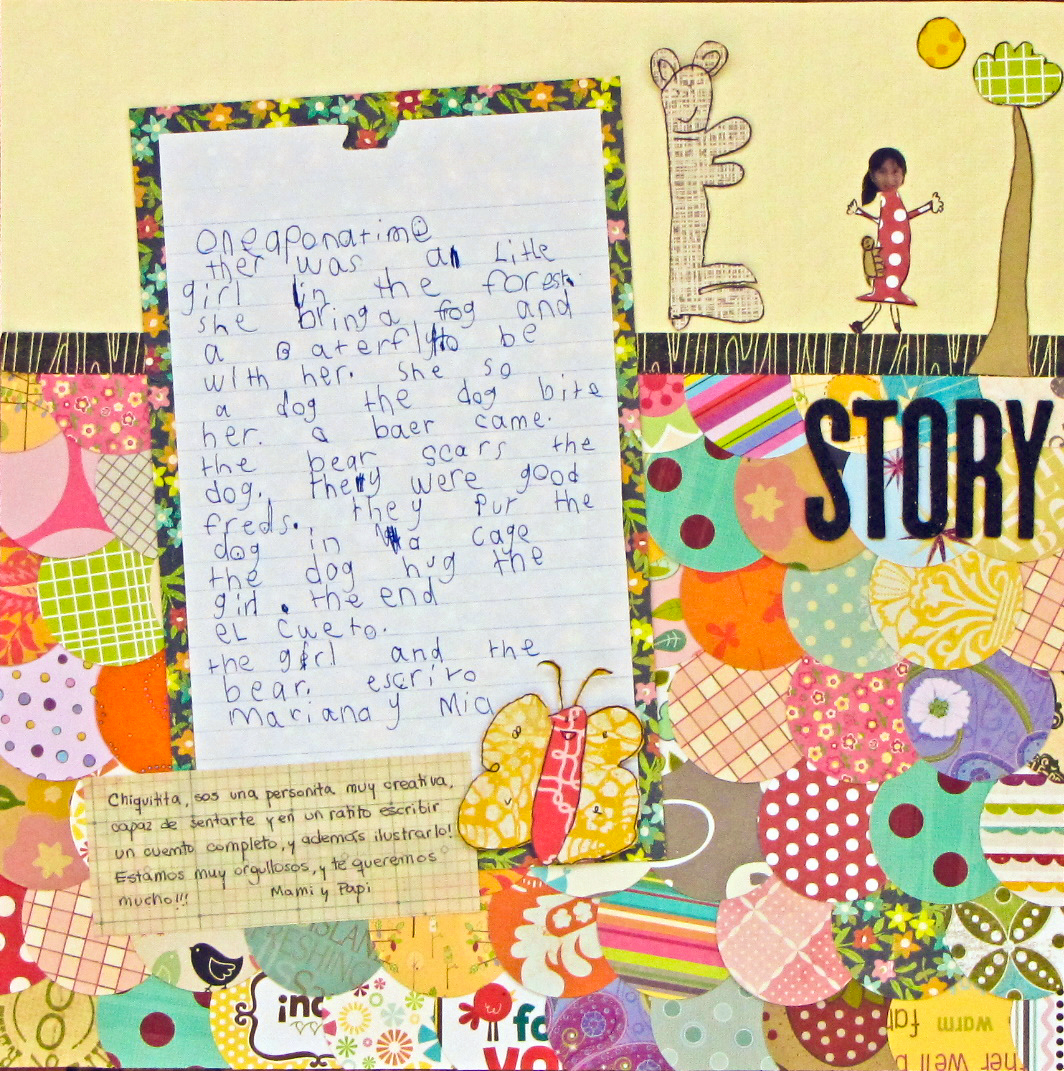 oneaponatime
ther was a Little
girl in the forest.
she bring a fog and
a Baterfly to be
with her. she so
a dog the dog bite
her. a baer came.
the bear scars the
dog. they were good
freds. they pur the
dog in a cage
the dog hug the
girl. the end
el cueto.
the girl and the
bear. escrivo
mariana y mia
STORY
Chiquitita, sos una personita muy creativa,
capaz de sentarte y en un ratito escribir
un cuento completo, y además ilustrarlo!
Estamos muy orgullosos, y te queremos
mucho!!! Mami y Papi
ISLAN
RESHING
warm
far
her we'll b